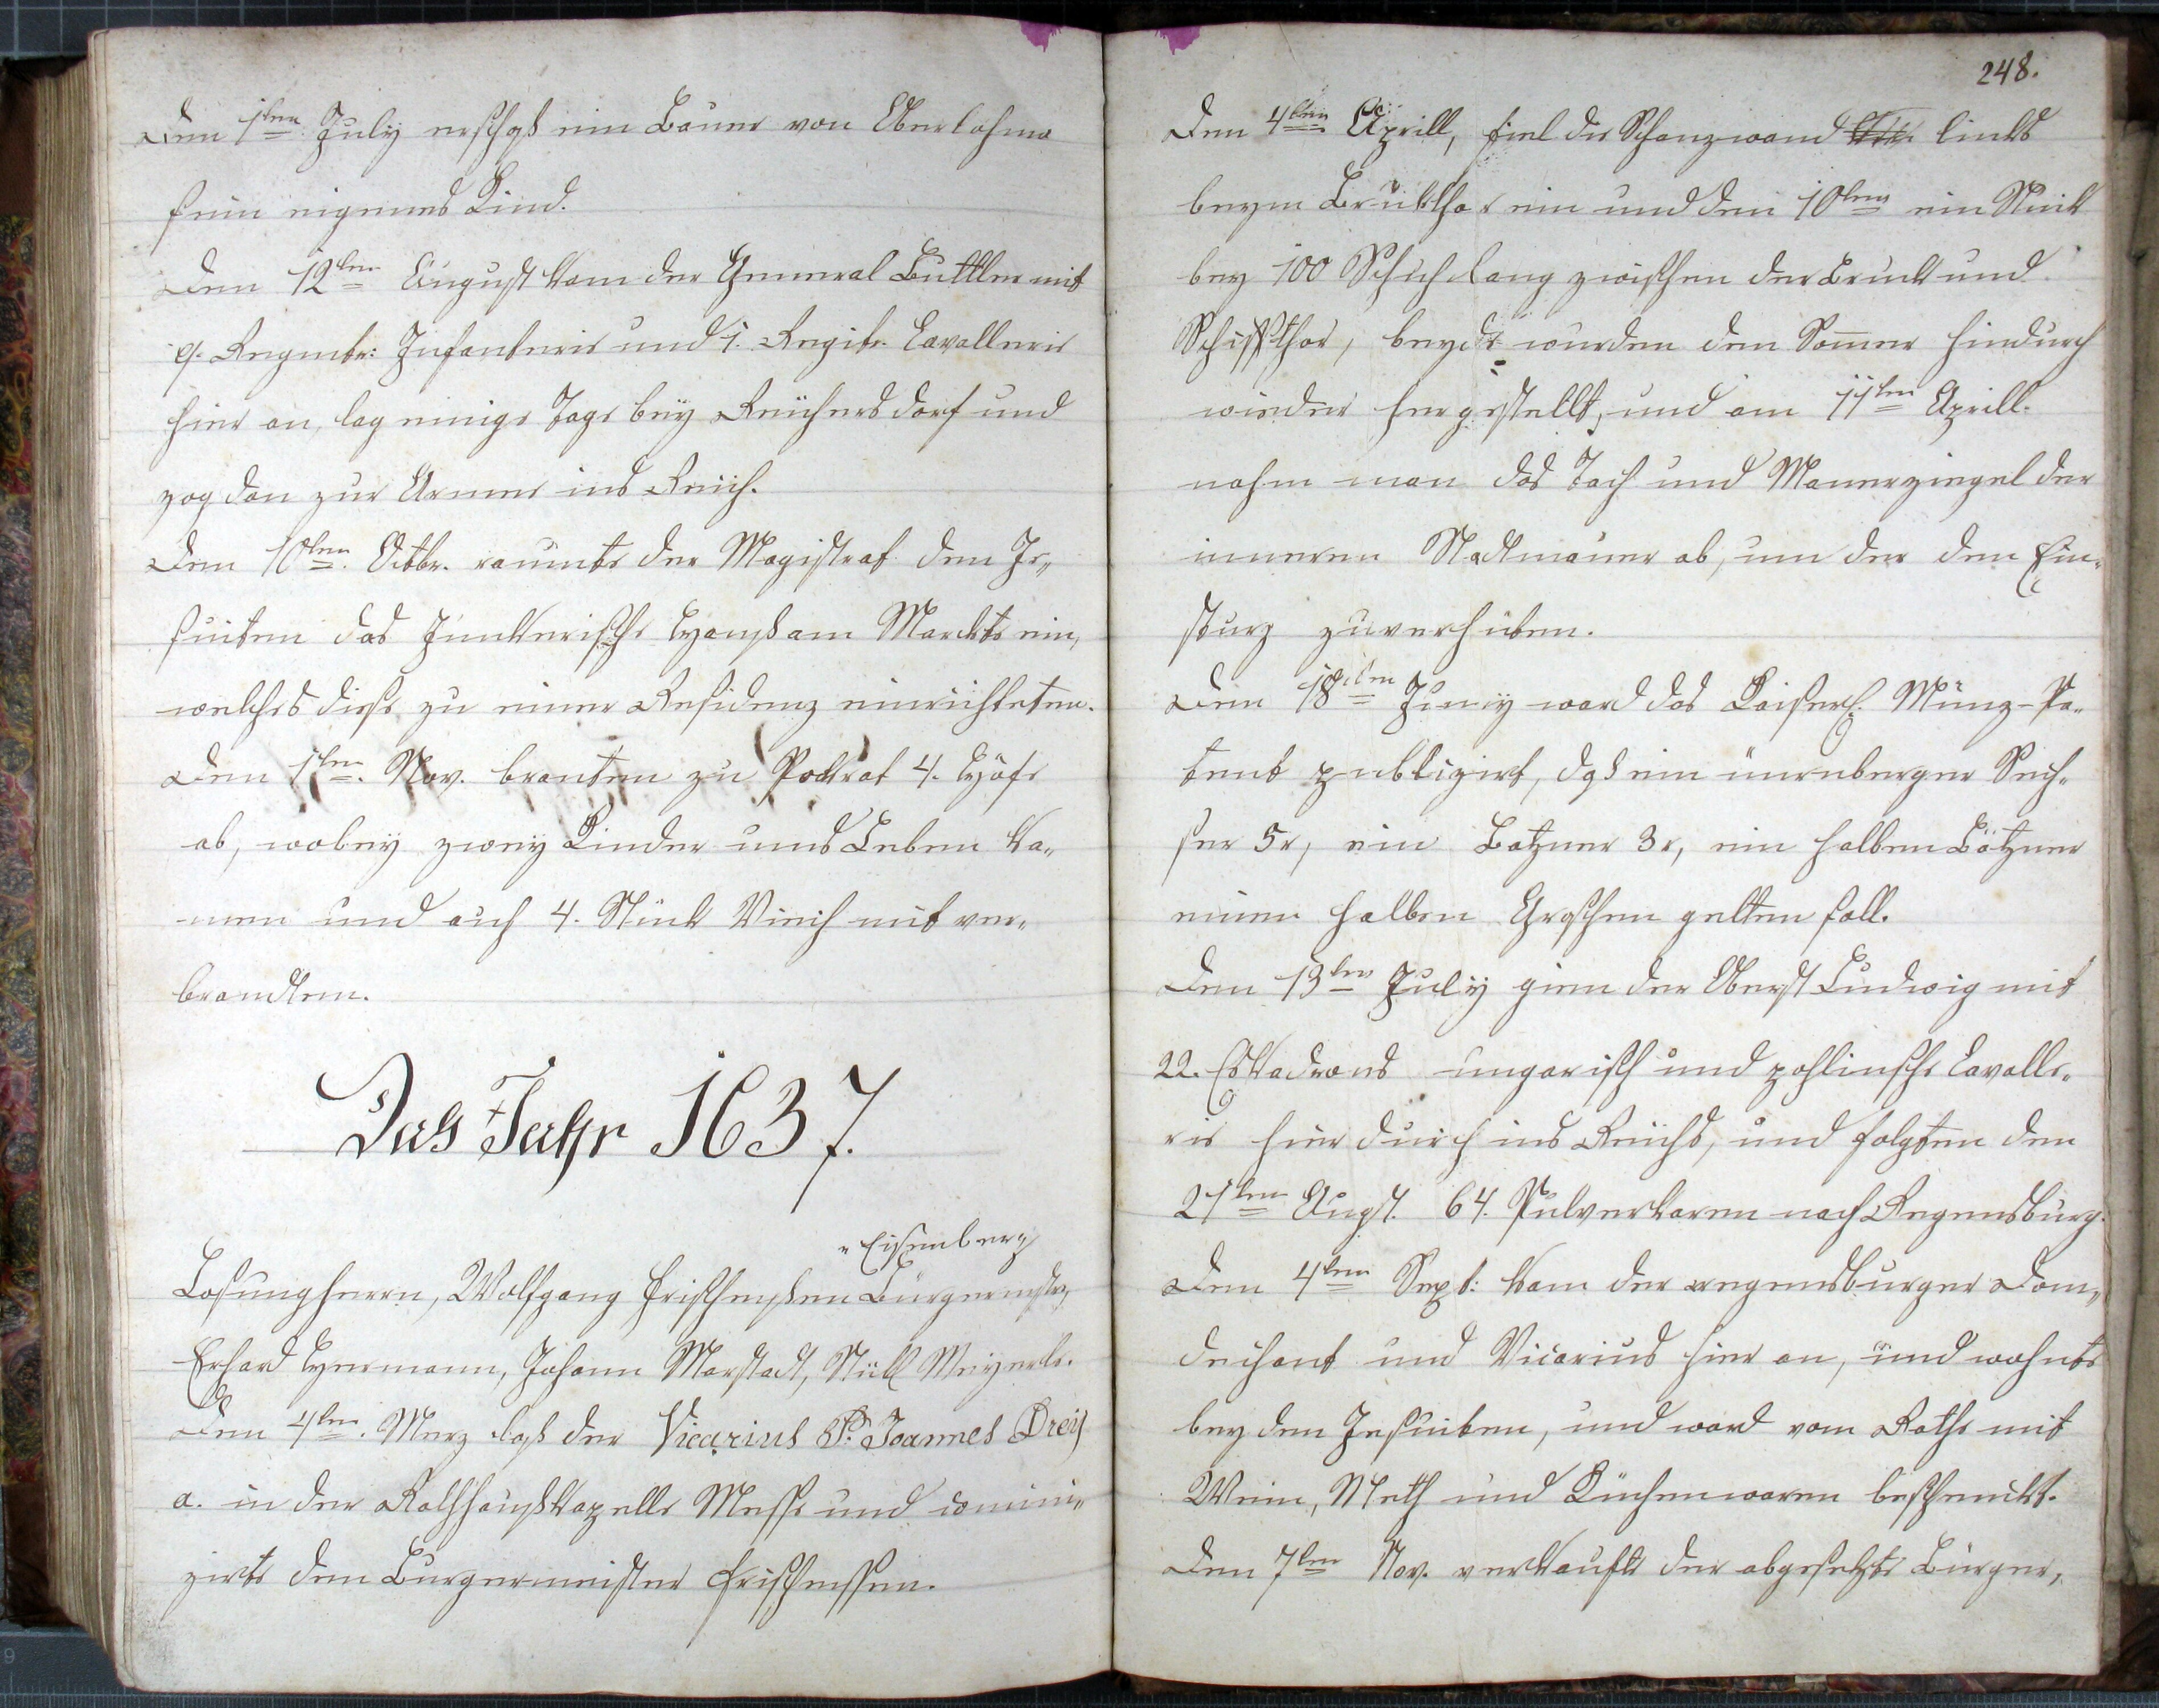 Den 1ten July erschoß ein Bauer von Oberlohma
sein eigenes Kind.
Den 12ten August kam der General Buttler mit
9. Regmtr: Infanterie und 1. Regitr. Cavallerie
hier an, lag einige Tage beÿ Reichersdorf und
zog dan zur Armee ins Reich.
Den 10ten. Octbr. raumte der Magistrat den Je„
suiten das Junkerische Hauß am Markte ein,
welches diese zu einer Residenz einrichteten.
Den 1ten. Nov. branten zu Pottrat 4. Höfe
ab, wobeÿ zweÿ Kinder ums Leben ka„
men und auch 4. Stück Viech mit ver„
brandten.
Das Jahr 1637.
„Eisenberg
Losungherrn, Wolfgang Frischeyßen Bürgermstr,
Erhard Hermann, Johann Marstadt, Nikl Meyerle.
Den 4ten. Merz laß der Vicarius P. Joannes Dreÿ
a. in der Rathhaußkapelle Messe und comuni„
zirte den Burgermeister Frischeyssen.
248.
Den 4ten Aprill, fiel die Schanzwand links
beym Brükthor ein und den 10ten ein Stück
bey 100 Schuh lang zwischen der Bruck und
Schiffthor, beyde wurden den Sommer hindurch
wieder hergestellt, und am 11ten Aprill.
nahm man das Tach und Mauerziegel der
inneren Stadtmauer ab, um der den Ein„
sturz zuverhüten.
Den 18ten Junÿ ward das Kaiserl. Münz-Pa„
tent publizirt, daß ein nürnberger Sech„
ser 5x, ein Batzner 3x, ein halben Bätzner
einen halben Groschen gelten soll.
Den 13ten Julÿ gien der Oberst Ludwig mit
22. Eskadrons ungarisch und pohlnische Cavalle„
rie hier durch ins Reichs, und folgten den
21ten Augst. 64. Pulverkaren nach Regensburg.
Den 4ten Sept: kam der regensburger Dom„
dechant und Vicarius hier an, und wohnte
bey den Jesuiten, und ward vom Rathe mit
Wein, Meth und Küchenwaren beschenkt.
Den 7ten Nov. verkaufte der abgesetzte Bürger„